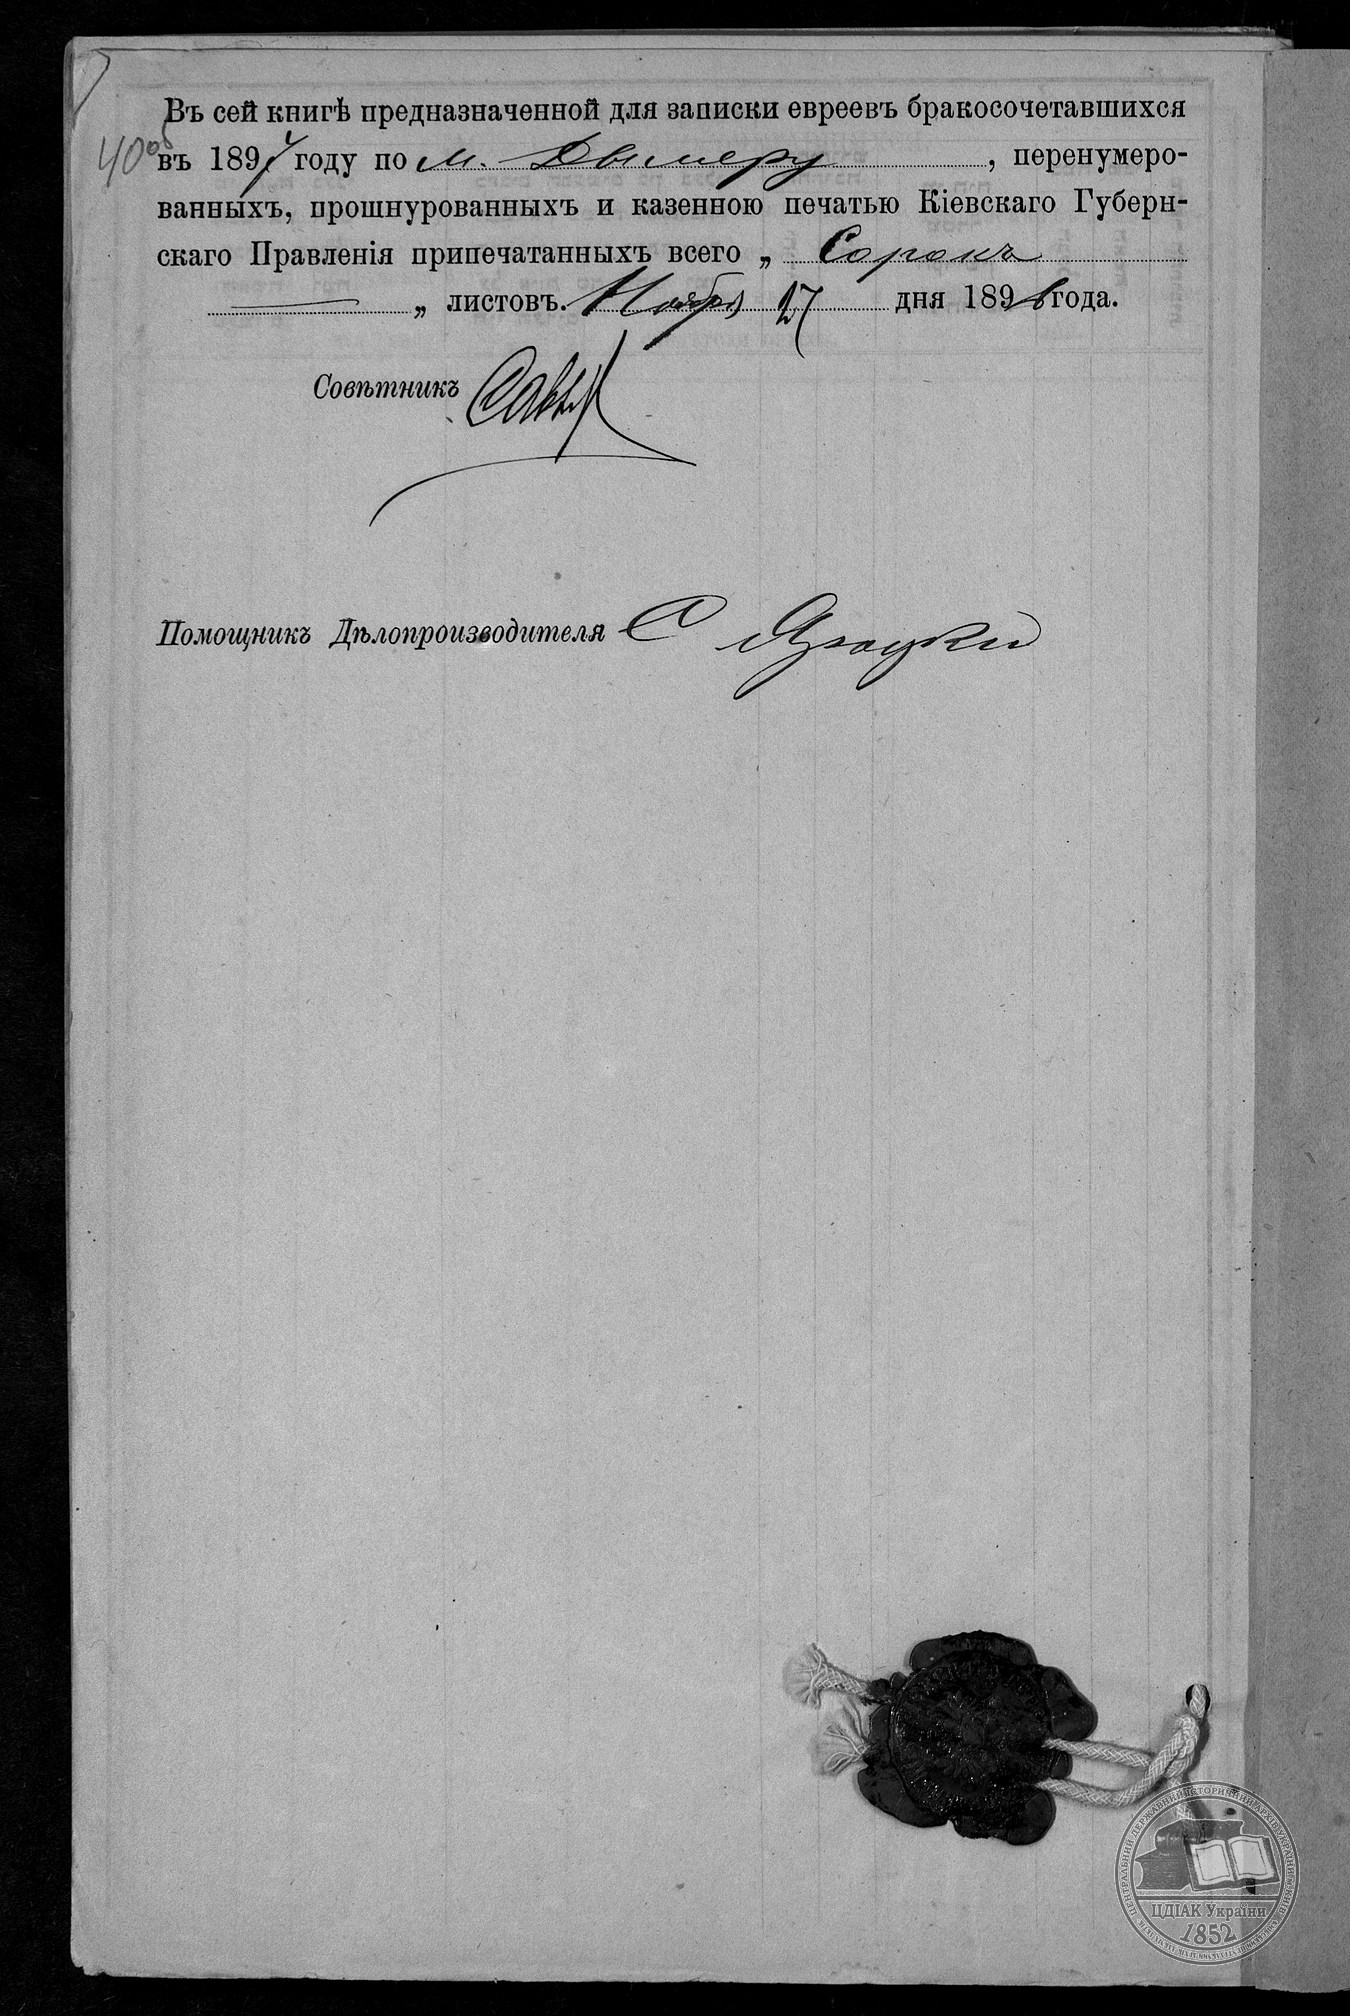 Въ сей книгѣ предназначенной для записки евреевъ бракосочетавшихся
40 об
въ 1897 году по м. Дымеру, перенумеро-
ванныхъ, прошнурованныхъ и казенною печатью Кіевскаго Губерн-
скаго Правленія припечатанныхъ всего „ Сорокъ
„ листовъ. Ноября 27 дня 1896 года.
Совѣтникъ
Помощникъ Дѣлопроизводителя С
ЦДІАК України
1852